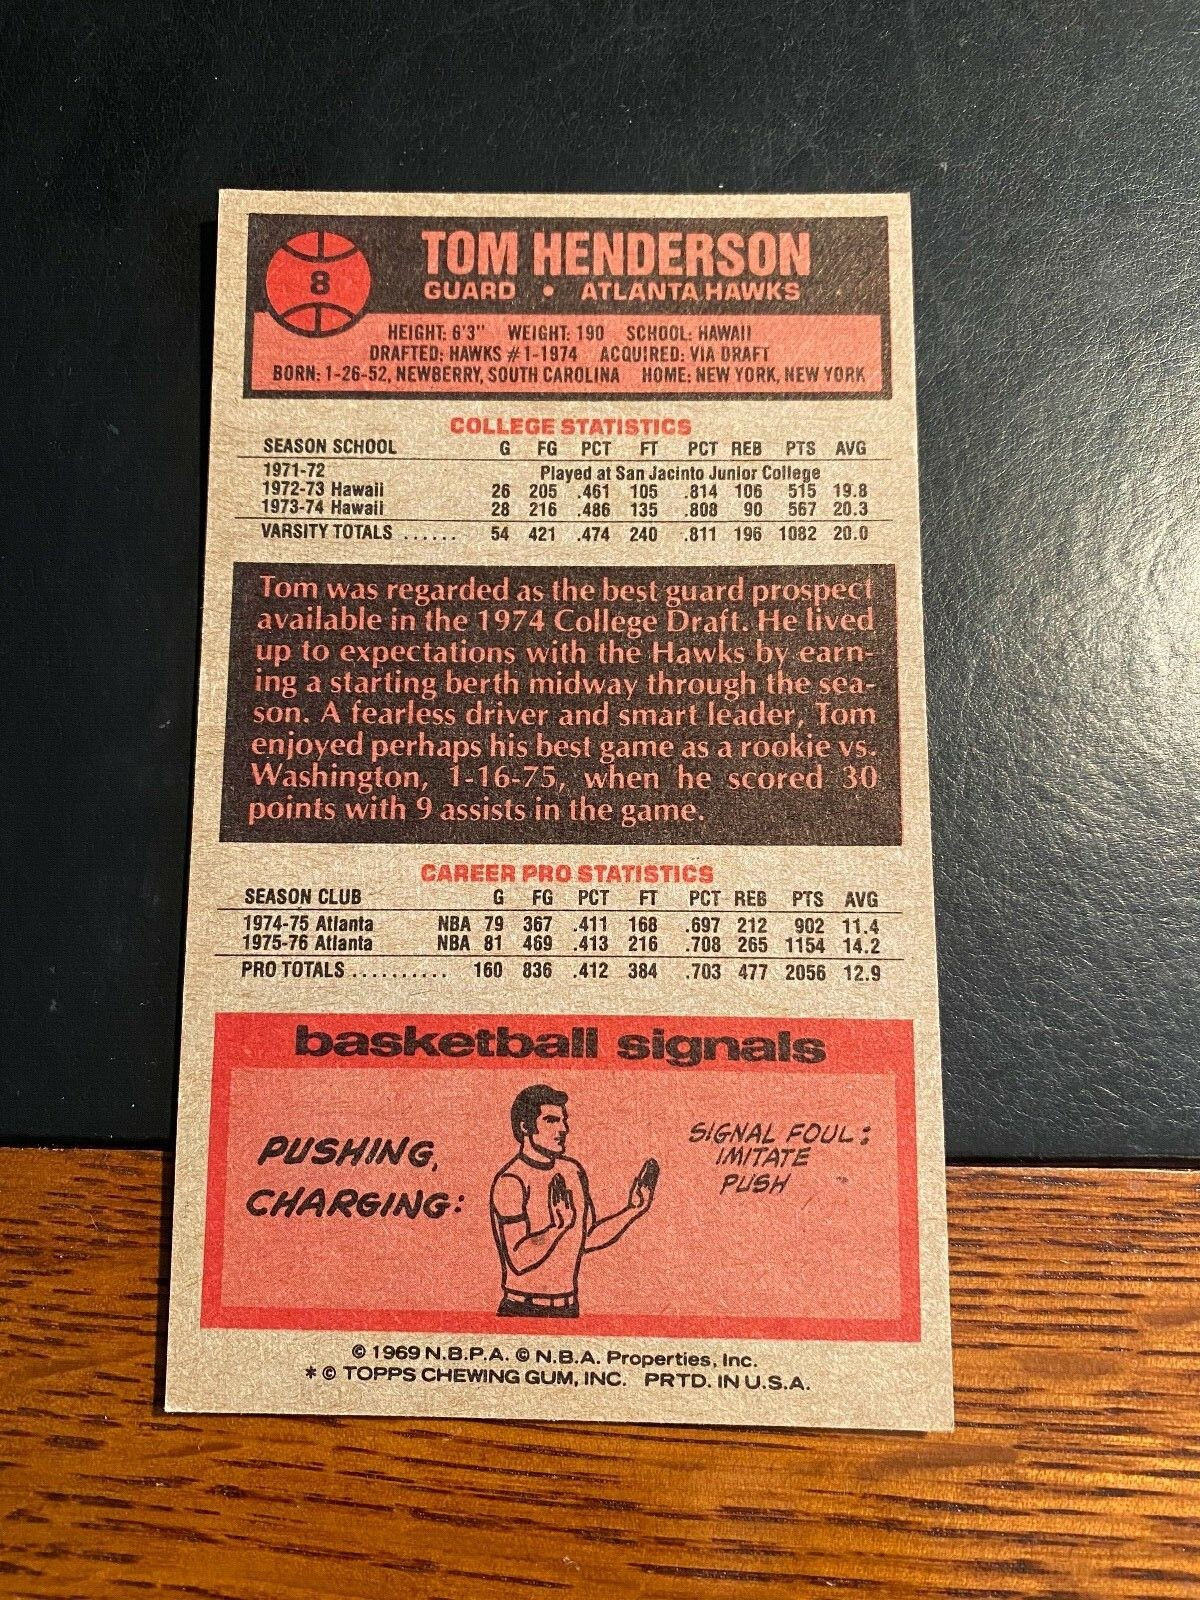 8
TOM HENDERSON
GUARD • ATLANTA HAWKS
HEIGHT: 6'3" WEIGHT: 190 SCHOOL: HAWAII
DRAFTED: HAWKS #1-1974 ACQUIRED: VIA DRAFT
BORN: 1-26-52, NEWBERRY, SOUTH CAROLINA HOME: NEW YORK, NEW YORK
COLLEGE STATISTICS
SEASON SCHOOL G FG PCT FT PCT REB PTS AVG
1971-72 Played at San Jacinto Junior College
1972-73 Hawaii 26 205 .461 105 .814 106 515 19.8
1973-74 Hawaii 28 216 .486 135 .808 90 567 20.3
VARSITY TOTALS ...... 54 421 .474 240 .811 196 1082 20.0
Tom was regarded as the best guard prospect
available in the 1974 College Draft. He lived
up to expectations with the Hawks by earn-
ing a starting berth midway through the sea-
son. A fearless driver and smart leader, Tom
enjoyed perhaps his best game as a rookie vs.
Washington, 1-16-75, when he scored 30
points with 9 assists in the game.
CAREER PRO STATISTICS
SEASON CLUB G FG PCT FT PCT REB PTS AVG
1974-75 Atlanta NBA 79 367 .411 168 .697 212 902 11.4
1975-76 Atlanta NBA 81 469 .413 216 .708 265 1154 14.2
PRO TOTALS .......... 160 836 .412 384 .703 477 2056 12.9
basketball signals
PUSHING,
CHARGING:
SIGNAL FOUL:
IMITATE
PUSH
© 1969 N.B.P.A. © N.B.A. Properties, Inc.
* © TOPPS CHEWING GUM, INC. PRTD. IN U.S.A.